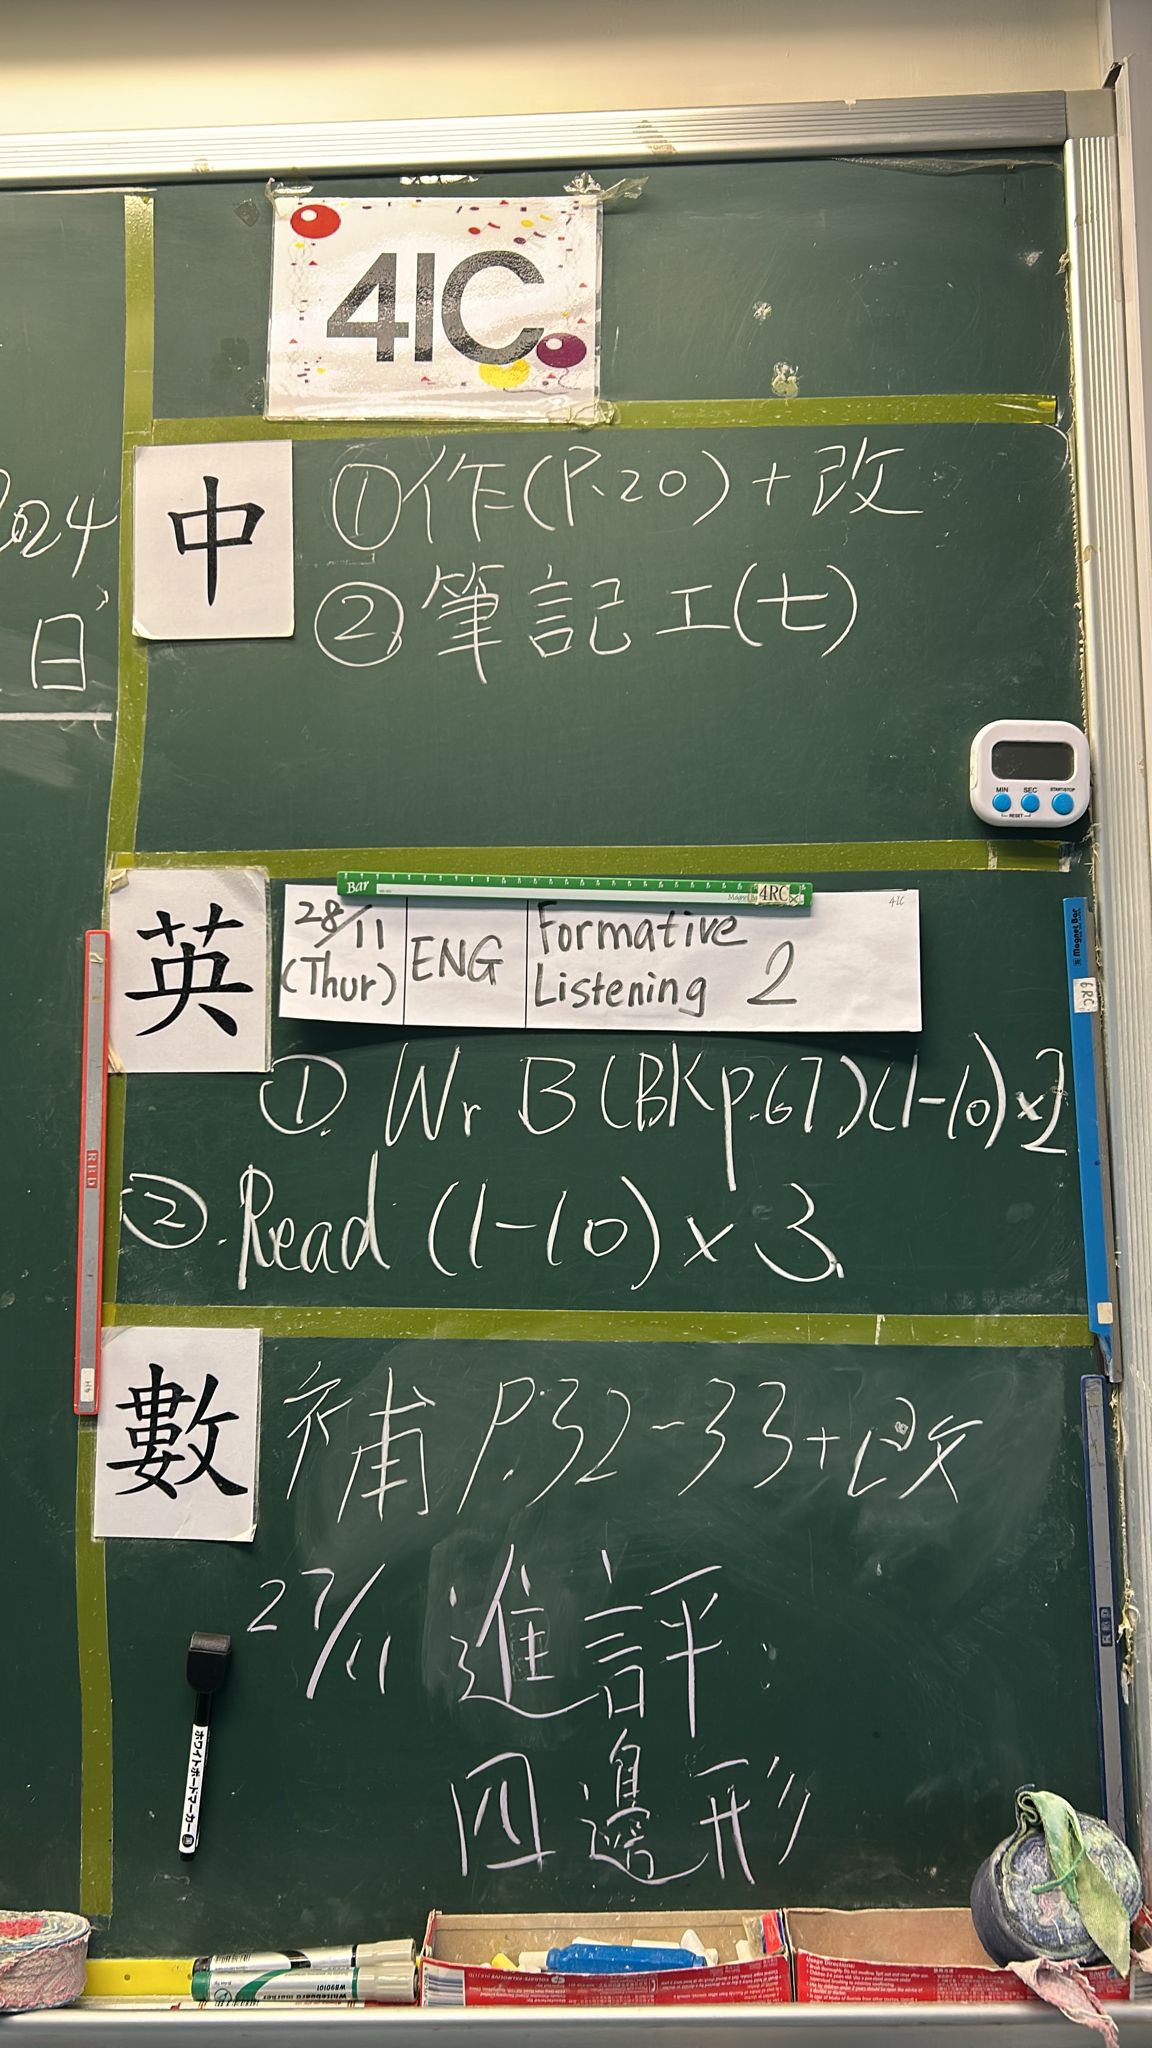 4IC
2024
日
中
①作(P.20)+改
②筆記工(七)
MIN SEC START/STOP
RESET
英
Bar
4RC
4IC
28/11 (Thur) ENG Formative Listening 2
Magnet Bar
6RC
①. Wr B (BK p.67) (1-10) x2
②. Read (1-10) x 3.
RBD
數
補 P.32-33+改
27/11 進評
四邊形
RBD
ホワイトボードマーカー
WB9101
Whiteboard marker
Usage Directions: